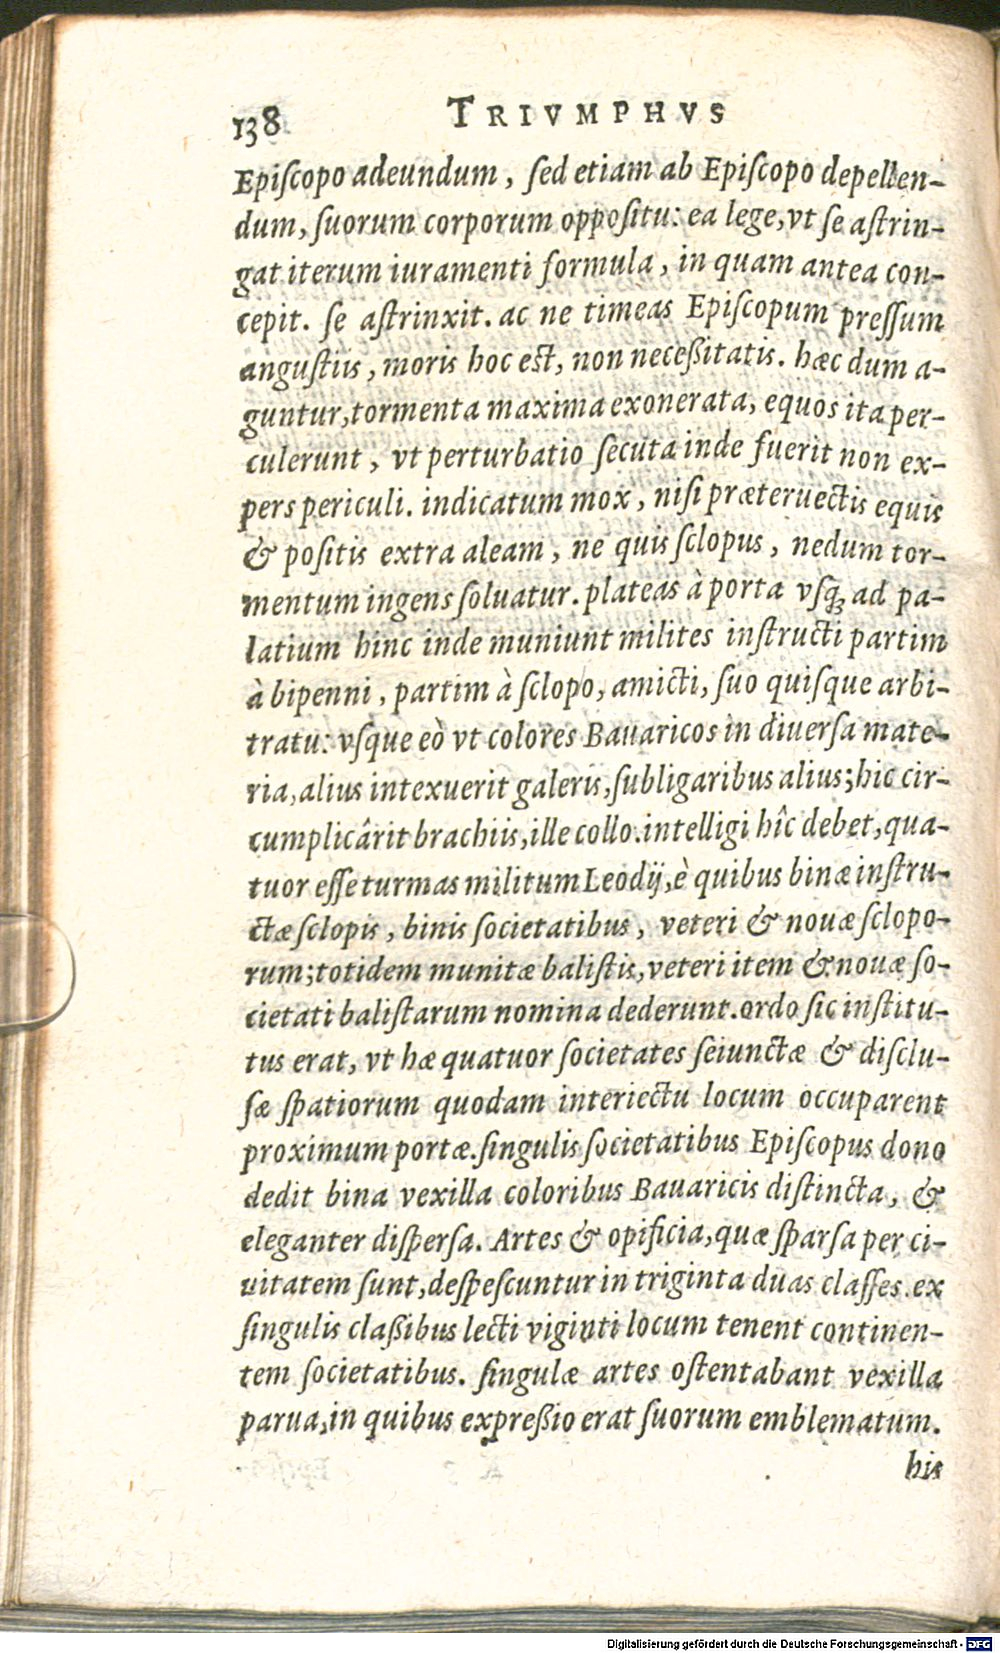 138 TRIVMPHVS
Epiſcopo adeundum, ſed etiam ab Epiſcopo depellen-
dum, ſuorum corporum oppoſitu: ea lege, vt ſe aſtrin-
gat iterum iuramenti formula, in quam antea con-
cepit. ſe aſtrinxit. ac ne timeas Epiſcopum preſſum
anguſtiis, moris hoc eſt, non neceßitatis. hæc dum a-
guntur, tormenta maxima exonerata, equos ita per-
culerunt, vt perturbatio ſecuta inde fuerit non ex-
pers periculi. indicatum mox, niſi præteruectis equis
& poſitis extra aleam, ne quis ſclopus, nedum tor-
mentum ingens ſoluatur. plateas à porta vſq; ad pa-
latium hinc inde muniunt milites inſtructi partim
à bipenni, partim à ſclopo, amicti, ſuo quiſque arbi-
tratu: vſque eò vt colores Bauaricos in diuerſa mate-
ria, alius intexuerit galeris, ſubligaribus alius; hic cir-
cumplicârit brachiis, ille collo. intelligi hîc debet, qua-
tuor eſſe turmas militum Leodij, è quibus binæ inſtru-
ctæ ſclopis, binis ſocietatibus, veteri & nouæ ſclopo-
rum; totidem munitæ baliſtis, veteri item & nouæ ſo-
cietati baliſtarum nomina dederunt. ordo ſic inſtitu-
tus erat, vt hæ quatuor ſocietates ſeiunctæ & diſclu-
ſæ ſpatiorum quodam interiectu locum occuparent
proximum portæ. ſingulis ſocietatibus Epiſcopus dono
dedit bina vexilla coloribus Bauaricis diſtincta, &
eleganter diſperſa. Artes & opificia, quæ ſparſa per ci-
uitatem ſunt, deſpeſcuntur in triginta duas claſſes. ex
ſingulis claßibus lecti viginti locum tenent continen-
tem ſocietatibus. ſingulæ artes oſtentabant vexilla
parua, in quibus expreßio erat ſuorum emblematum.
his
Digitalisierung gefördert durch die Deutsche Forschungsgemeinschaft - DFG